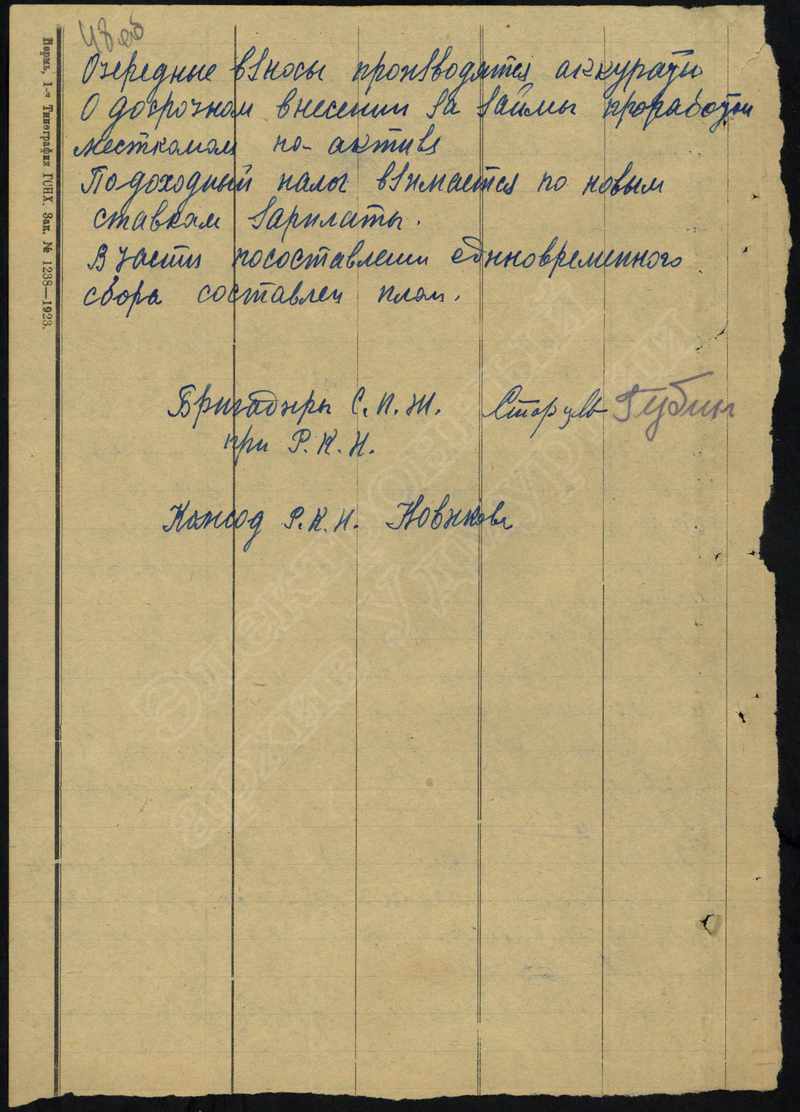 48 об
Пермь, 1-я Типография ГСНХ. Зак. № 1238—1923.
Очередные взносы производятся аккуратн
О досрочном внесении за займы проработан
месткомом на активе
Подоходный налог взимается по новым
ставкам зарплаты.
В части составлении единовременного
сбора составлен план.
Бригадиры С. П. Ж. Губин
при Р. К. И.
Комсод Р. К. И. Новикова
Электронный
архив Удмуртии